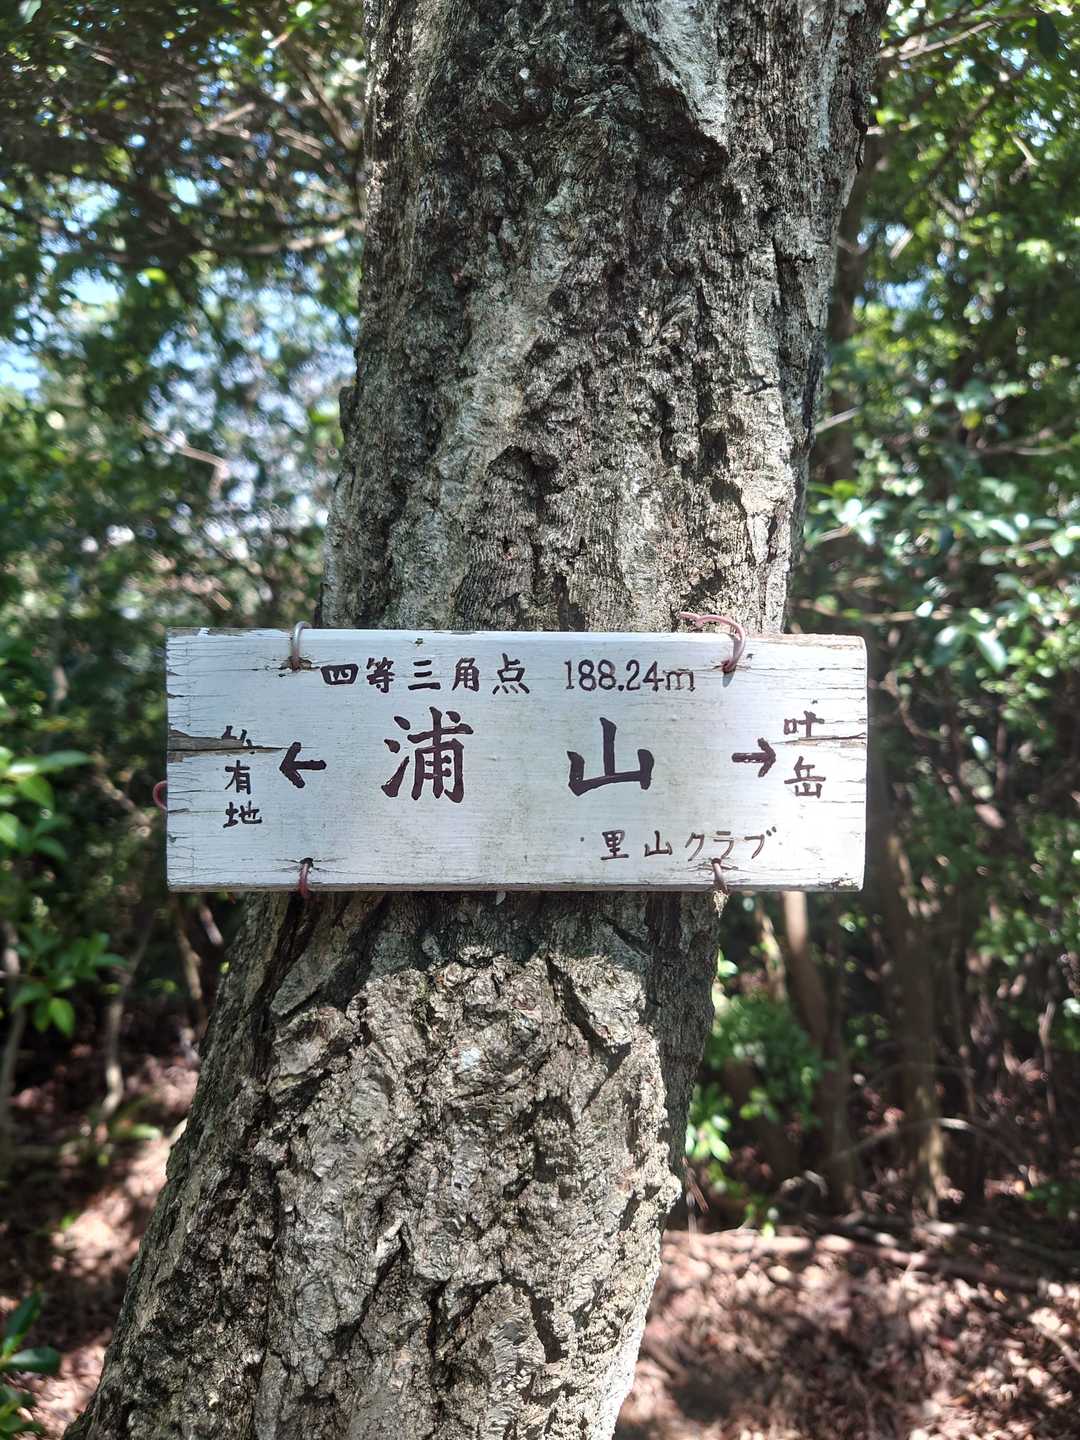 四等三角点 188.24m
有地
← 浦山 →
叶岳
里山クラブ